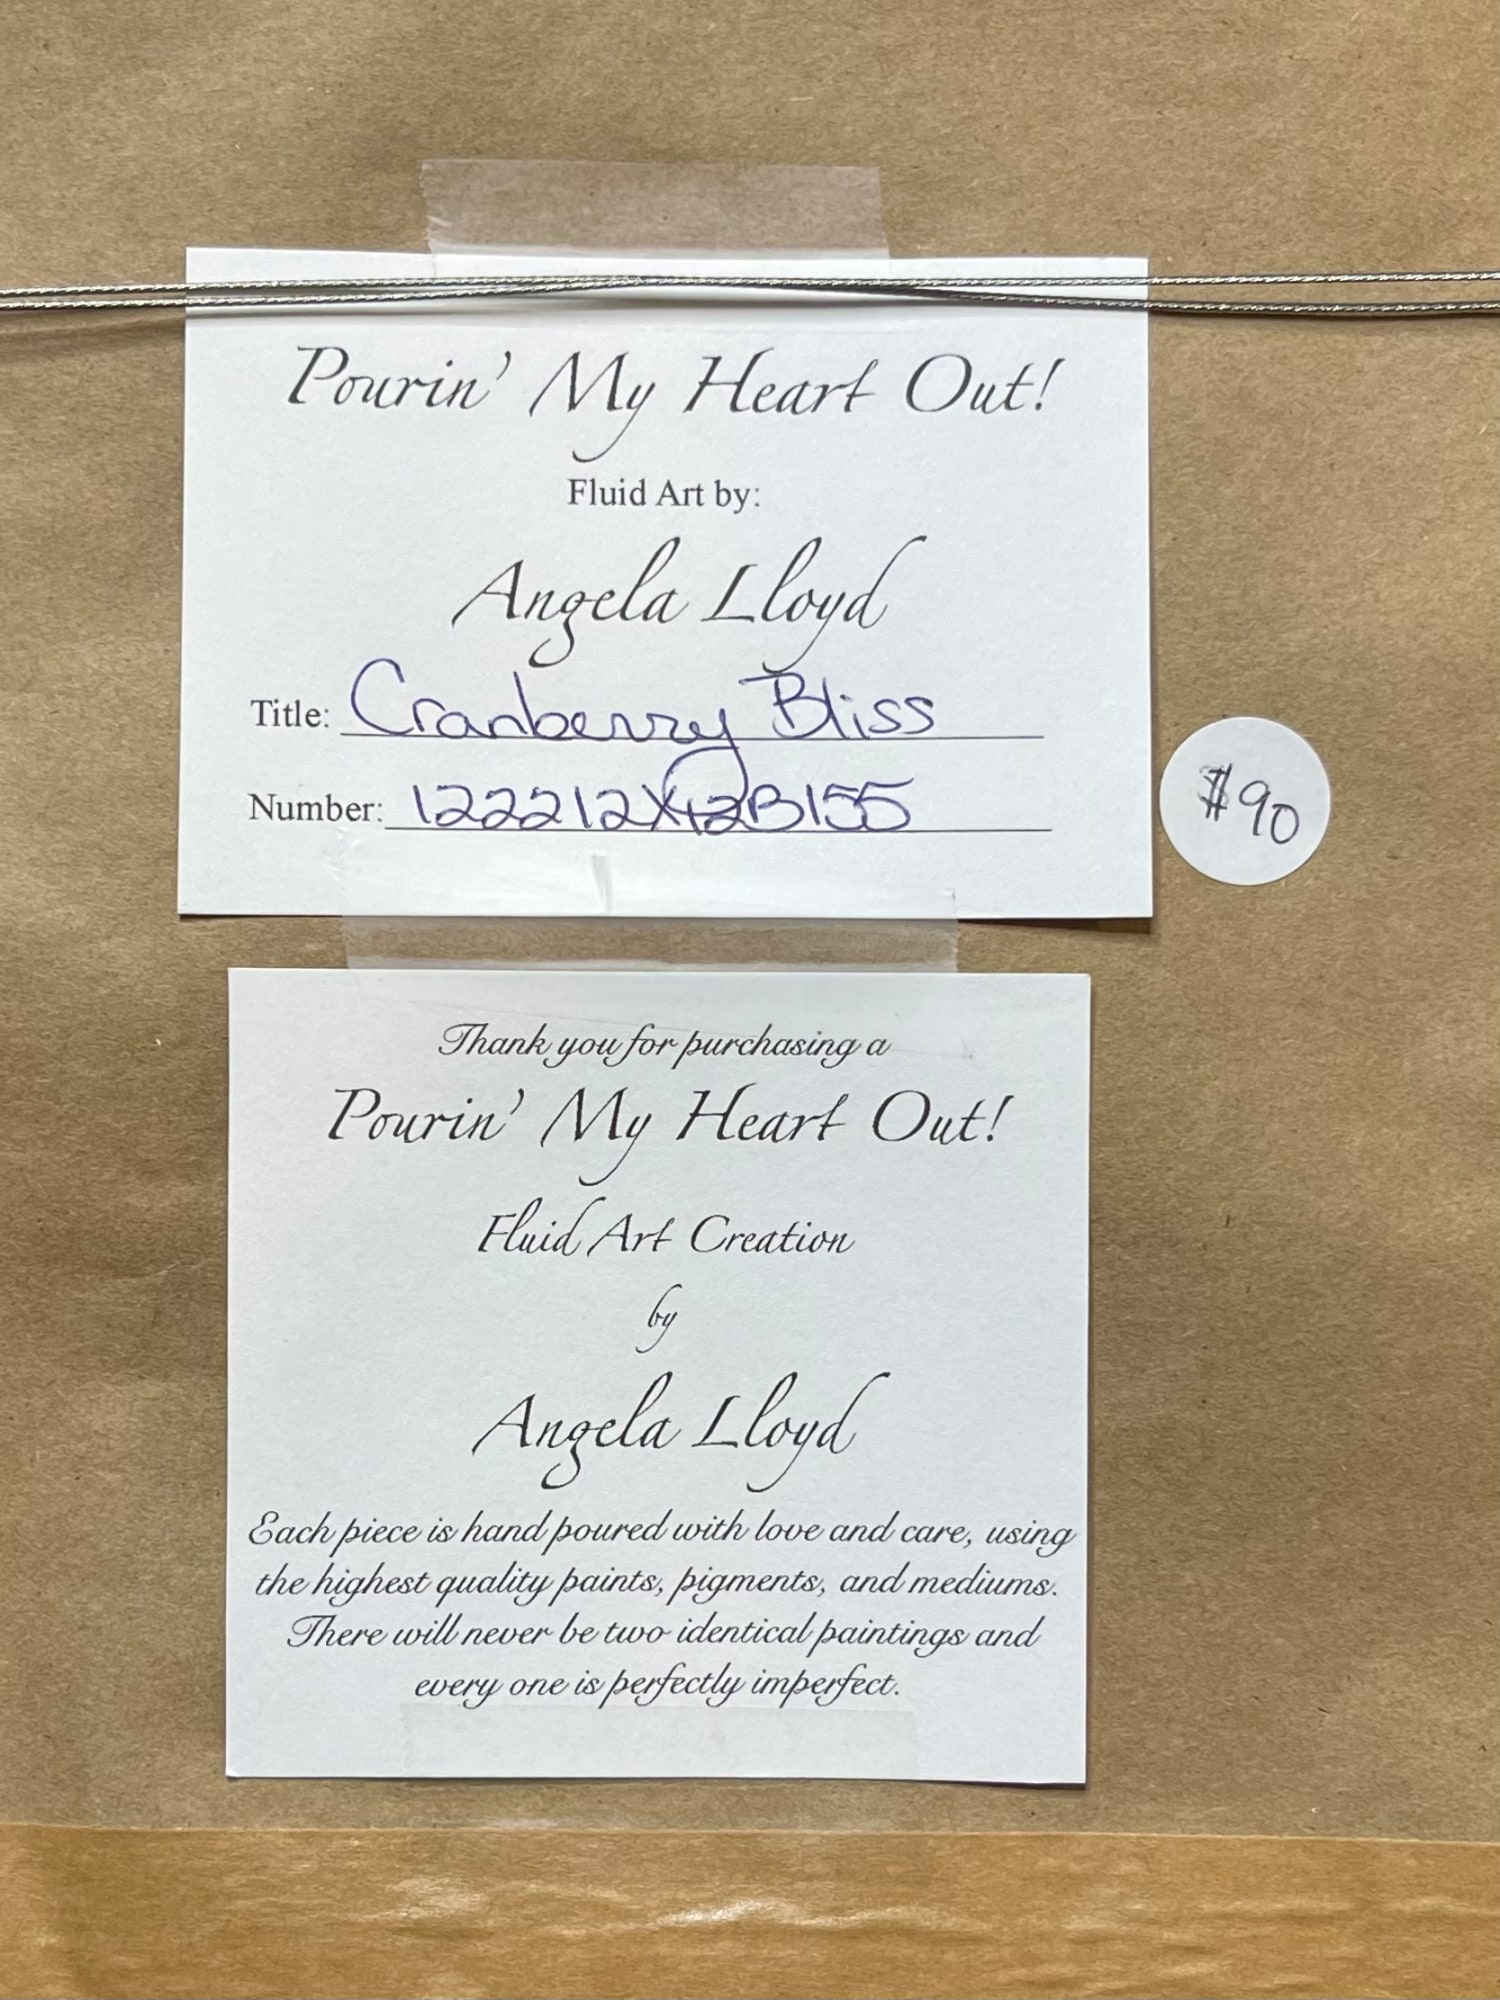 Pourin' My Heart Out!
Fluid Art by:
Angela Lloyd
Title: Cranberry Bliss
Number: 122212X12B155
$90
Thank you for purchasing a
Pourin' My Heart Out!
Fluid Art Creation
by
Angela Lloyd
Each piece is hand poured with love and care, using
the highest quality paints, pigments, and mediums.
There will never be two identical paintings and
every one is perfectly imperfect.